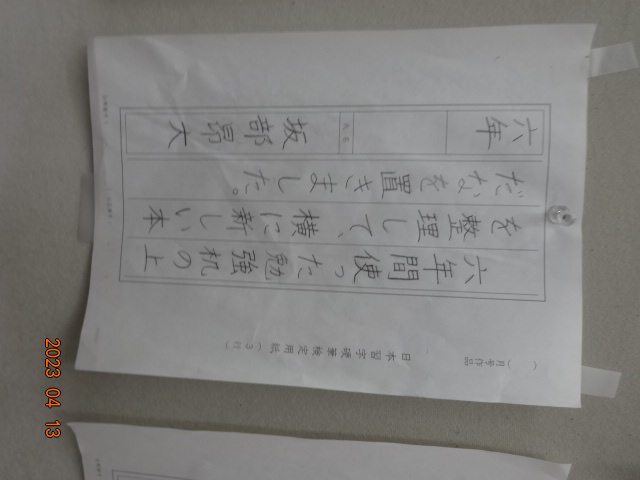 （　）月号作品
日本習字硬筆検定用紙（３行）
六年間使った勉強机の上
を整理して、横に新しい本
だなを置きました。
六年
氏名
坂部昂大
2023 04 13